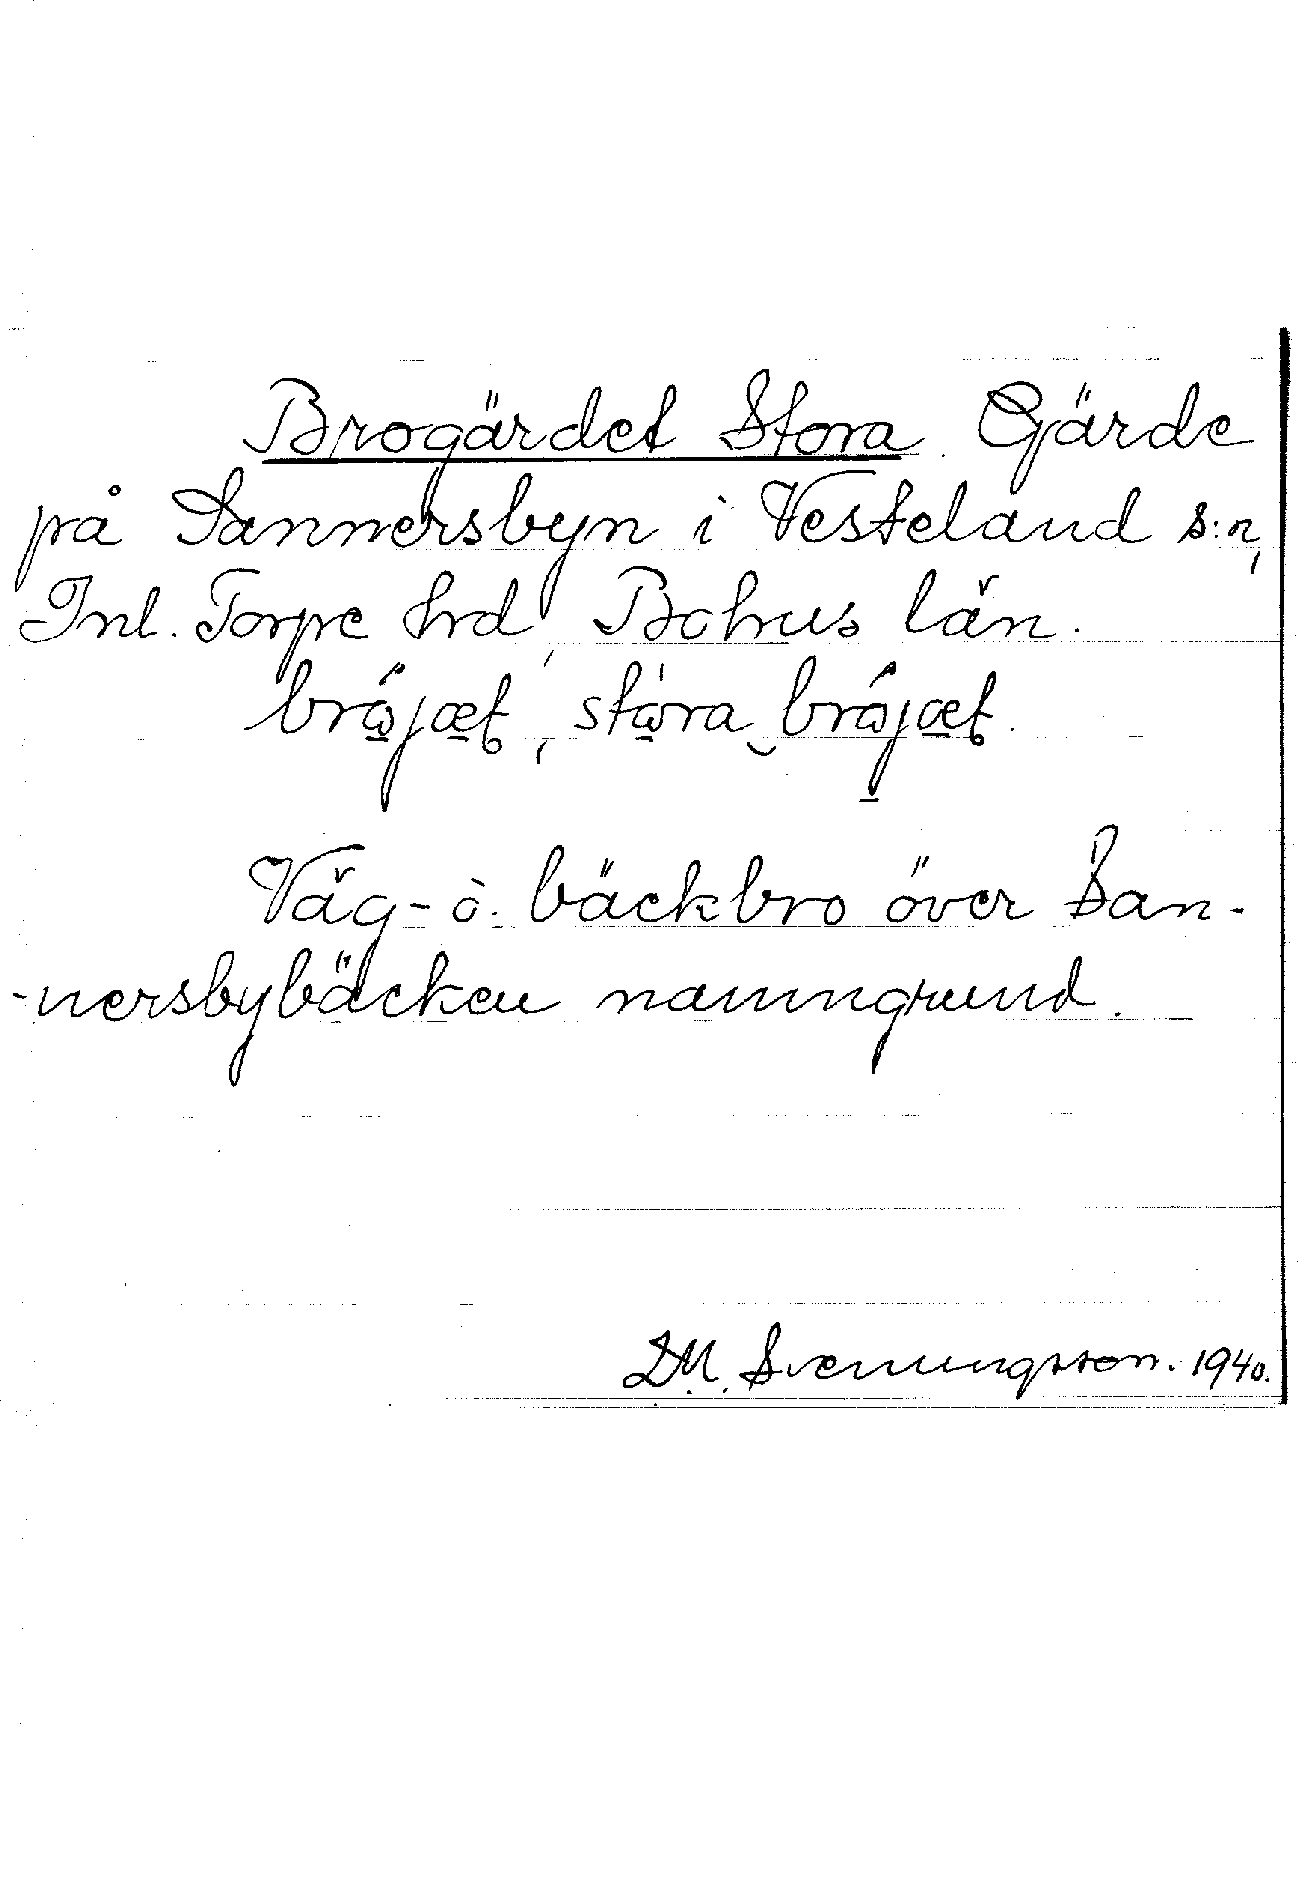 Brogärdet Stora. Gärde
på Sannersbyn i Vesteland s:n,
Inl. Torpe hrd, Bohus län.
Väg- o. bäckbro över San-
-nersbybäcken namngrund.
D.M. Svenungsson. 1940.